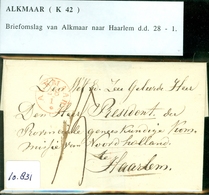 ALKMAAR ( K 42 )
Briefomslag van Alkmaar naar Haarlem d.d. 28 - 1.
Den Wel Ed. Zeer Geleerde Heer
Den Heer President der
Provinciale geneeskundige Kom-
missie van Noord holland
te
Haarlem
10.831